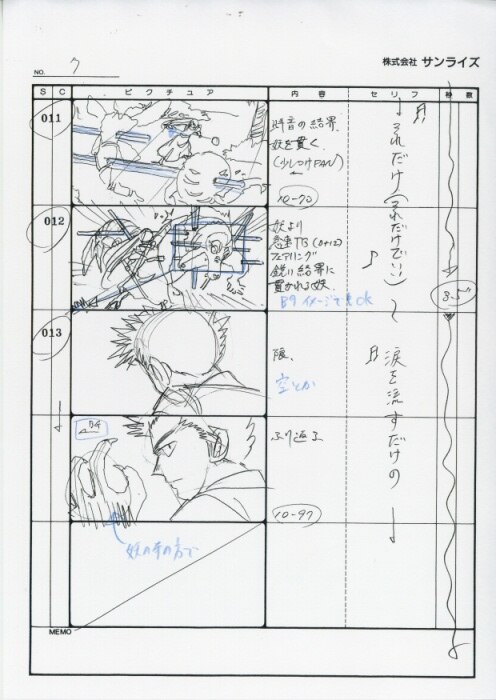 株式会社 サンライズ
NO. 7
S C ピクチュア 内容 セリフ 秒数
011
時音の結界、
妖を貫く、
(少しつけPAN)
←
10-70
それだけ(それだけでいい)〜
012
妖より
急速TB(0+12)
フェアリング
鋭い結界に
貫かれる妖
BG イメージで良ok
8-5
013
限、
空とか
涙を流すだけの
BG
ふり返る
10-97
妖の手の方で
MEMO